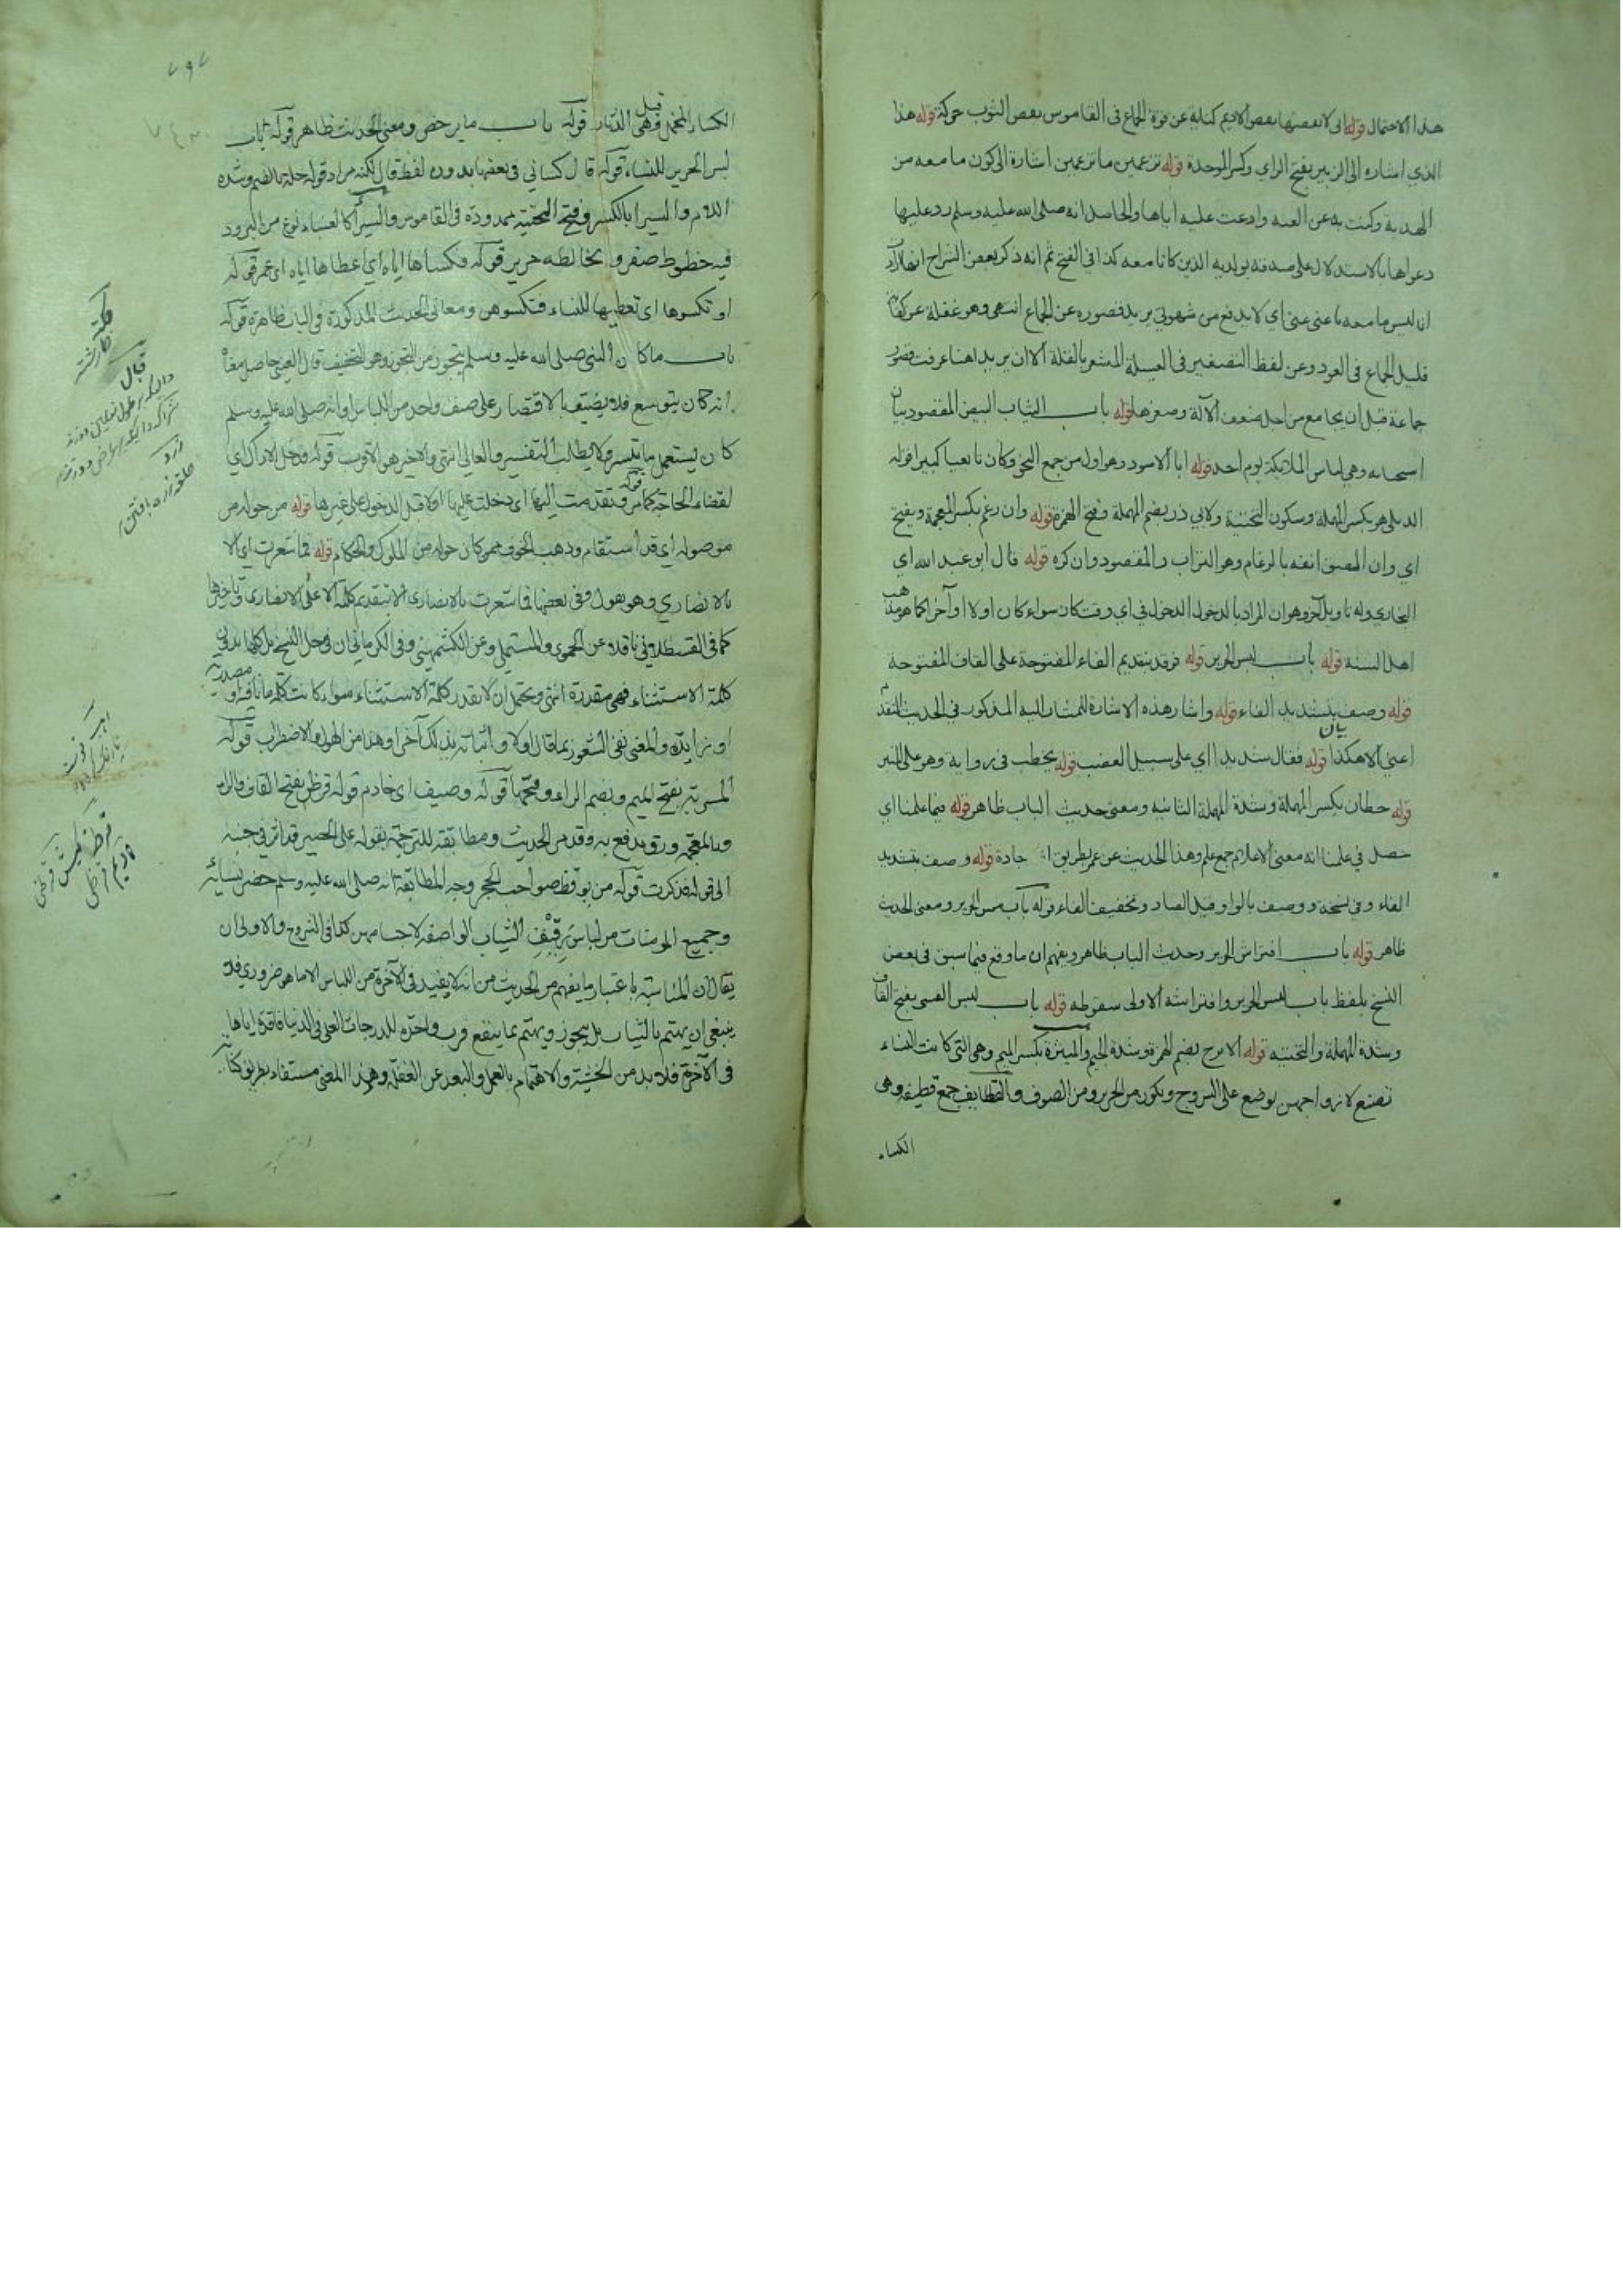 هذا الاحتمال قوله اني لانفضها نفض الاديم كناية عن قوة الجماع في القاموس نفض الثوب حركه قوله هذا
الذي اشاره الى الزبير بفتح الزاي وكسر الموحدة قوله تزعمين ما تزعمين اشارة الى كون ما معه من
الهدبة وكنت به عن العنه وادعت عليه اياها والحاصل انه صلى الله عليه وسلم رد عليها
دعواها بالاستدلال على صدقه بولديه الذين كانا معه كذا في الفتح ثم انه ذكر بعض الشراح
ان ليس ما معه باغنى عني اي لا يدفع من شهوتي يريد قصوره عن الجماع انتهى وهو غفلة عن
قليل الجماع في العود وعن لفظ التصغير في العسيلة المشعر بالقلة الا ان يريد اهنا عرفت
جماعة قبل ان يجامع من اجل ضعف الآلة وصغرها قوله باب الثياب البيض المقصود بيان
اسحبابه وهي لباس الملائكة يوم احد قوله ابا الاسود وهو اول من جمع النحو وكان تابعيا كبيرا قوله
الديلي هو بكسر المهملة وسكون التحتية ولابي ذر بضم المهملة وفتح الهمزة قوله وان رغم بكسر المعجمة وبفتح
اي وان الصق انفه بالرغام وهو التراب والمقصود وان كره قوله قال ابو عبد الله اي
البخاري وله تاويل آخر وهو ان المراد بالدخول الدخول في اي وقت كان سواء كان اولا او آخرا كما هو مذهب
اهل السنة قوله باب لبس الحرير قوله فرقد بتقديم الفاء المفتوحة على القاف المفتوحة
قوله وصف بتشديد الفاء قوله واشار هذه الاشارة المشار اليه المذكور في الحديث المتقدم
اعني الا هكذا قوله فقال شديدا اي على سبيل الغضب قوله يخطب في رواية وهو على المنبر
قوله حطان بكسر المهملة وشدة المهملة الثانيه ومعنى حديث الباب ظاهر قوله فيما علمنا اي
حصل في علمنا انه معنى الاعلام جمع علم وهذا الحديث عن عمر بطريق جادة قوله وصف بتشديد
الفاء وفي نسخة ووصف بالواو قبل الصاد وتخفيف الفاء قوله باب مس الحرير ومعنى الحديث
ظاهر قوله باب افتراش الحرير وحديث الباب ظاهر ويفهم ان ما وقع فيما سبق في بعض
النسخ بلفظ باب لبس الحرير وافتراشه الاولى سقوطه قوله باب لبس القسي بفتح القاف
وشدة المهملة والتحتيه قوله الاترج بضم الهمزة وشدة الجيم والميثرة بكسر الميم وهي التي كانت النساء
تصنع لازواجهن يوضع على السروج ويكون من الحرير ومن الصوف والقطايف جمع قطيفه وهي
الكساء
٧٩٧
الكساء المخمل وقيل هي الدثار قوله باب ما يرخص ومعنى الحديث ظاهر قوله باب
لبس الحرير للنساء قوله قال كساني في بعضها بدون لفظ قال لكنه مراد قوله حلة بالضم وشدة
اللام والسيرا بالكسر وفتح التحتية ممدودة في القاموس والسيرا كالعنباء نوع من البرود
فيه خطوط صفر و يخالطه حرير قوله فكساها اياه اي اعطاها اياه اي عمر قوله
او تكسوها اي تعطيها للنساء فتكسوهن ومعاني الحديث المذكورة في الباب ظاهرة قوله
باب ما كان النبي صلى الله عليه وسلم يتجوز من التجوز وهو التخفيف قال العيني حاصل معناه
انه كان يتوسع فلا يضيق بالاقتصار على صنف واحد من اللباس او انه صلى الله عليه وسلم
كان يستعمل ما تيسر ولا يطلب النفيس والعالي انتهى والاخير هو الاقرب قوله فدخل الاراك اي
لقضاء الحاجة كما مر قوله وتقدمت اليها اي دخلت عليها اولا قبل الدخول على غيرها قوله من حوله من
موصوله اي قد استقام وذهب الخوف ممن كان حوله من الملوك والحكام قوله فما شعرت اي الا
بالانصاري وهو يقول وفي بعضها فما شعرت بالانصاري الا بتقديم كلمة الا على الانصاري وتاخيرها
كما في القسطلاني ناقلا عن الحموي والمستملي وعن الكشميهني وفي الكرماني ان في جل النسخ بل كلها بدون
كلمة الاستثناء فهي مقدرة انتهى ويحتمل ان لا يقدر كلمة الاستثناء سواء كانت كلمة ما نافية او مصدرية
او زايدة والمعنى نفي الشعور بما قال اولا واثباته بذلك آخرا وهذا من الهول والاضطراب قوله
المسربة بفتح الميم وبضم الراء وفتحها قوله وصيف اي خادم قوله قرظ بفتح القاف والراء
وبالمعجمة ورق يدبغ به وقد مر الحديث ومطابقته للترجمة بقوله على الحصير قد اثر في جنبه
الى قوله فذكرت قوله من يوقظ صواحب الحجر وجه المطابقة انه صلى الله عليه وسلم حضر نسائه
وجميع المومنات من لباس رقيق الثياب الواصفة لاجسامهن كذا في الشروح والاولى ان
يقال ان المناسبة باعتبار ما يفهم من الحديث من انه لا يفيد في الآخرة من اللباس الا ما هو ضروري فلا
ينبغي ان يهتم بالثياب بل يجوز ويهتم بما ينفع فرب واحدة للدرجات العلى في الدنيا فاقدة اياها
في الآخرة فلا بد من الخشية والاهتمام بالعمل والبعد عن الغفلة وهذا المعنى مستفاد بطريق
قبال